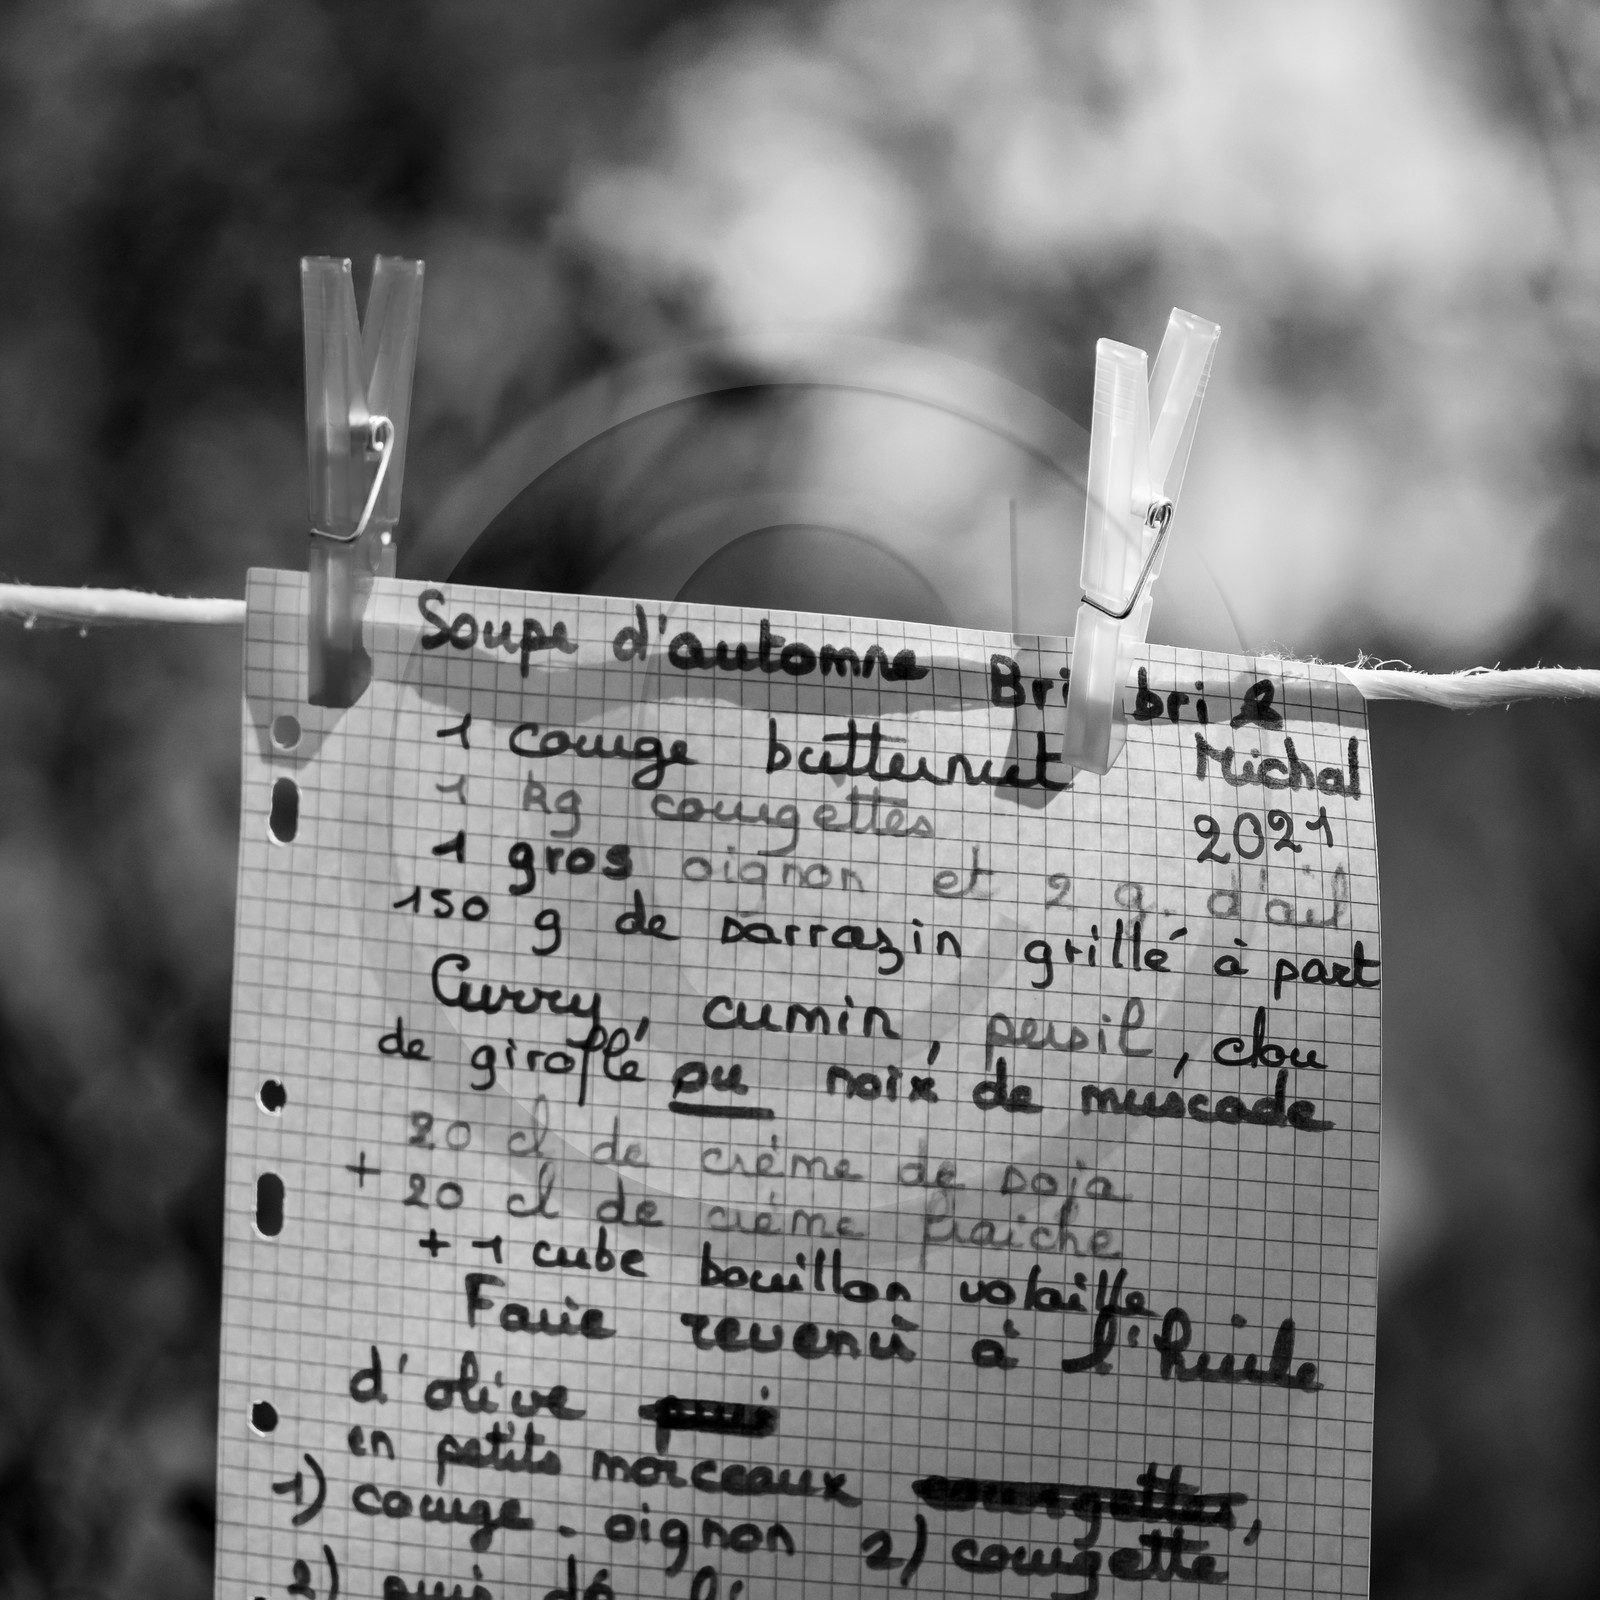 Soupe d'automne Bri bri &
1 courge butternut Michal
1 kg courgettes 2021
1 gros oignon et 2 g. d'ail
150 g de sarrazin grillé à part
Curry, cumin, persil, clou
de giroflé ou noix de muscade
20 cl de crème de soja
+ 20 cl de crème fraiche
+ 1 cube bouillon volaille
Faire revenir à l'huile
d'olive puis
en petits morceaux courgettes,
1) courge - oignon 2) courgette
2) puis dé